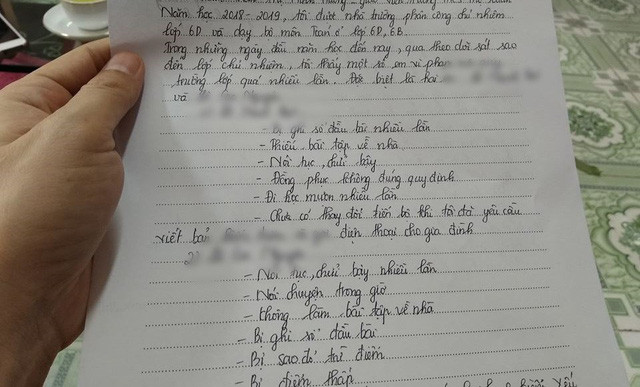 Năm học 2018-2019, tôi được nhà trường phân công chủ nhiệm
lớp 6D và dạy bộ môn Toán ở lớp 6D, 6B.
Trong những ngày đầu năm học đến nay, qua theo dõi sát sao
đến lớp chủ nhiệm, tôi thấy một số em vi phạm
trường lớp quá nhiều lần. Đặc biệt là hai
và
- Bị ghi sổ đầu bài nhiều lần
- Thiếu bài tập về nhà
- Nói tục, chửi bậy
- Đồng phục không đúng quy định
- Đi học muộn nhiều lần
- Chưa có thay đổi tiến bộ khi tôi đã yêu cầu
viết bản điện thoại cho gia đình
- Nói tục, chửi bậy nhiều lần
- Nói chuyện trong giờ
- Không làm bài tập về nhà
- Bị ghi sổ đầu bài
- Bị sao đỏ trừ điểm
- Bị điểm thấp